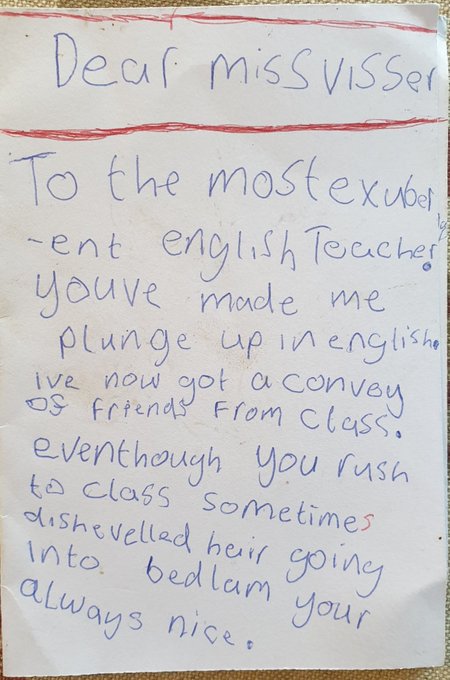 Dear miss visser
To the most exuber
-ent english Teacher.
youve made me
plunge up in english.
ive now got a convoy
of friends from class.
eventhough you rush
to class sometimes
dishevelled heir going
into bedlam your
always nice.